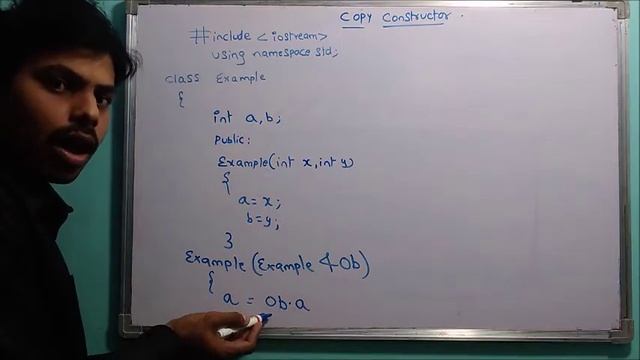 Copy Constructor.
#include <iostream>
using namespace std;
class Example
{
int a,b;
Public:
Example(int x,int y)
{
a=x;
b=y;
}
Example(Example &Ob)
{
a = Ob.a